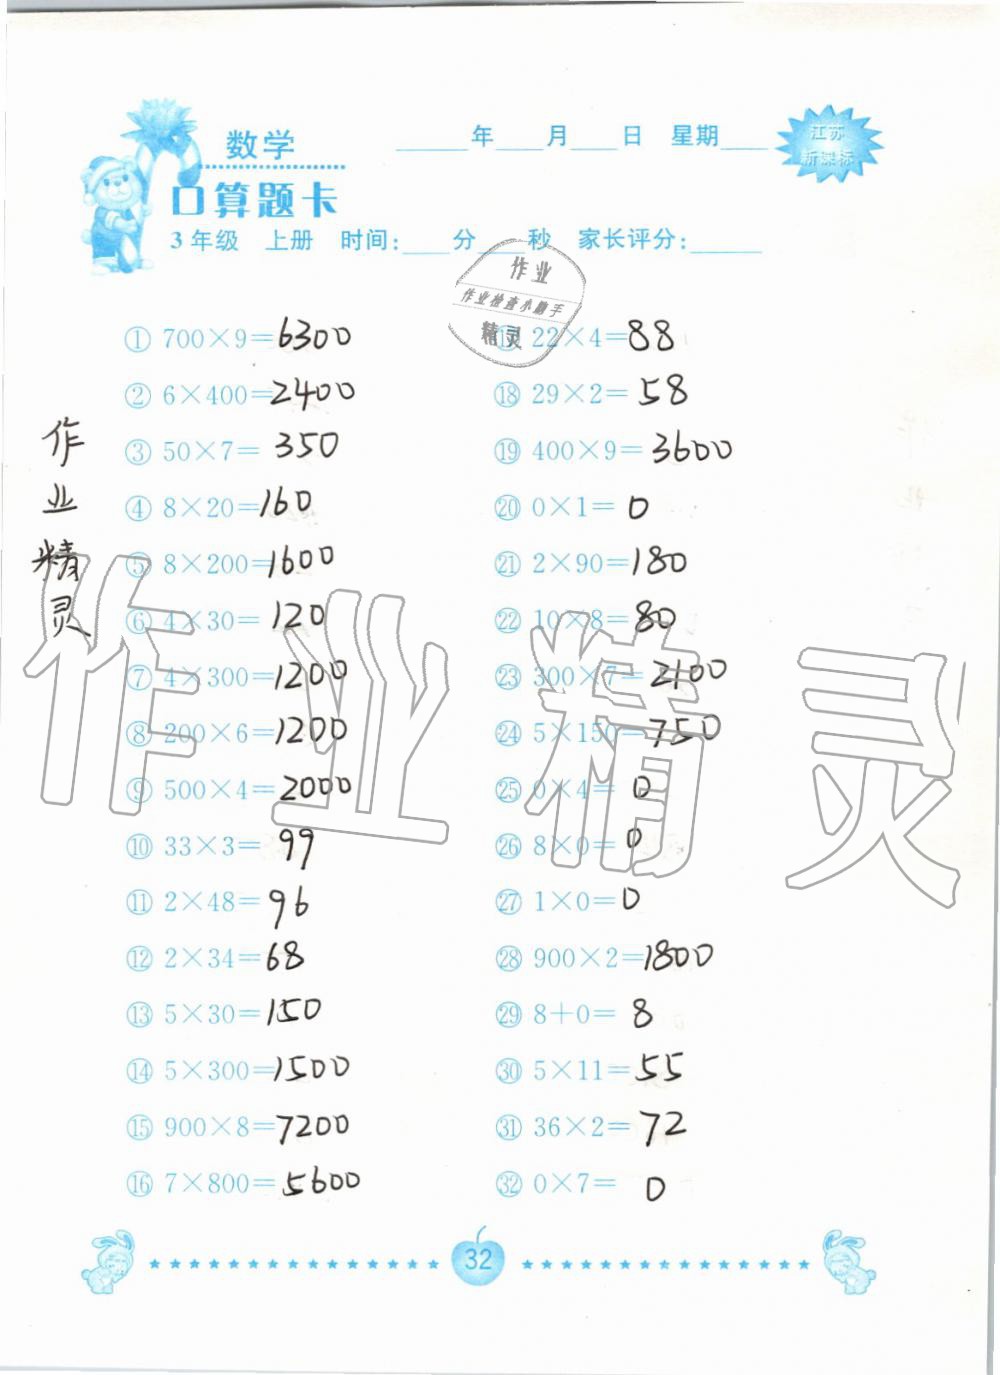 数学
____年____月____日 星期____
江苏
新课标
口算题卡
3年级 上册 时间:____分____秒 家长评分:______
作业
作业检查小助手
精灵
① 700×9=6300
② 6×400=2400
③ 50×7=350
④ 8×20=160
⑤ 8×200=1600
⑥ 4×30=120
⑦ 4×300=1200
⑧ 200×6=1200
⑨ 500×4=2000
⑩ 33×3=99
⑪ 2×48=96
⑫ 2×34=68
⑬ 5×30=150
⑭ 5×300=1500
⑮ 900×8=7200
⑯ 7×800=5600
⑰ 22×4=88
⑱ 29×2=58
⑲ 400×9=3600
⑳ 0×1=0
㉑ 2×90=180
㉒ 10×8=80
㉓ 300×7=2100
㉔ 5×150=750
㉕ 0×4=0
㉖ 8×0=0
㉗ 1×0=0
㉘ 900×2=1800
㉙ 8+0=8
㉚ 5×11=55
㉛ 36×2=72
㉜ 0×7=0
作业精灵
作业精灵
32